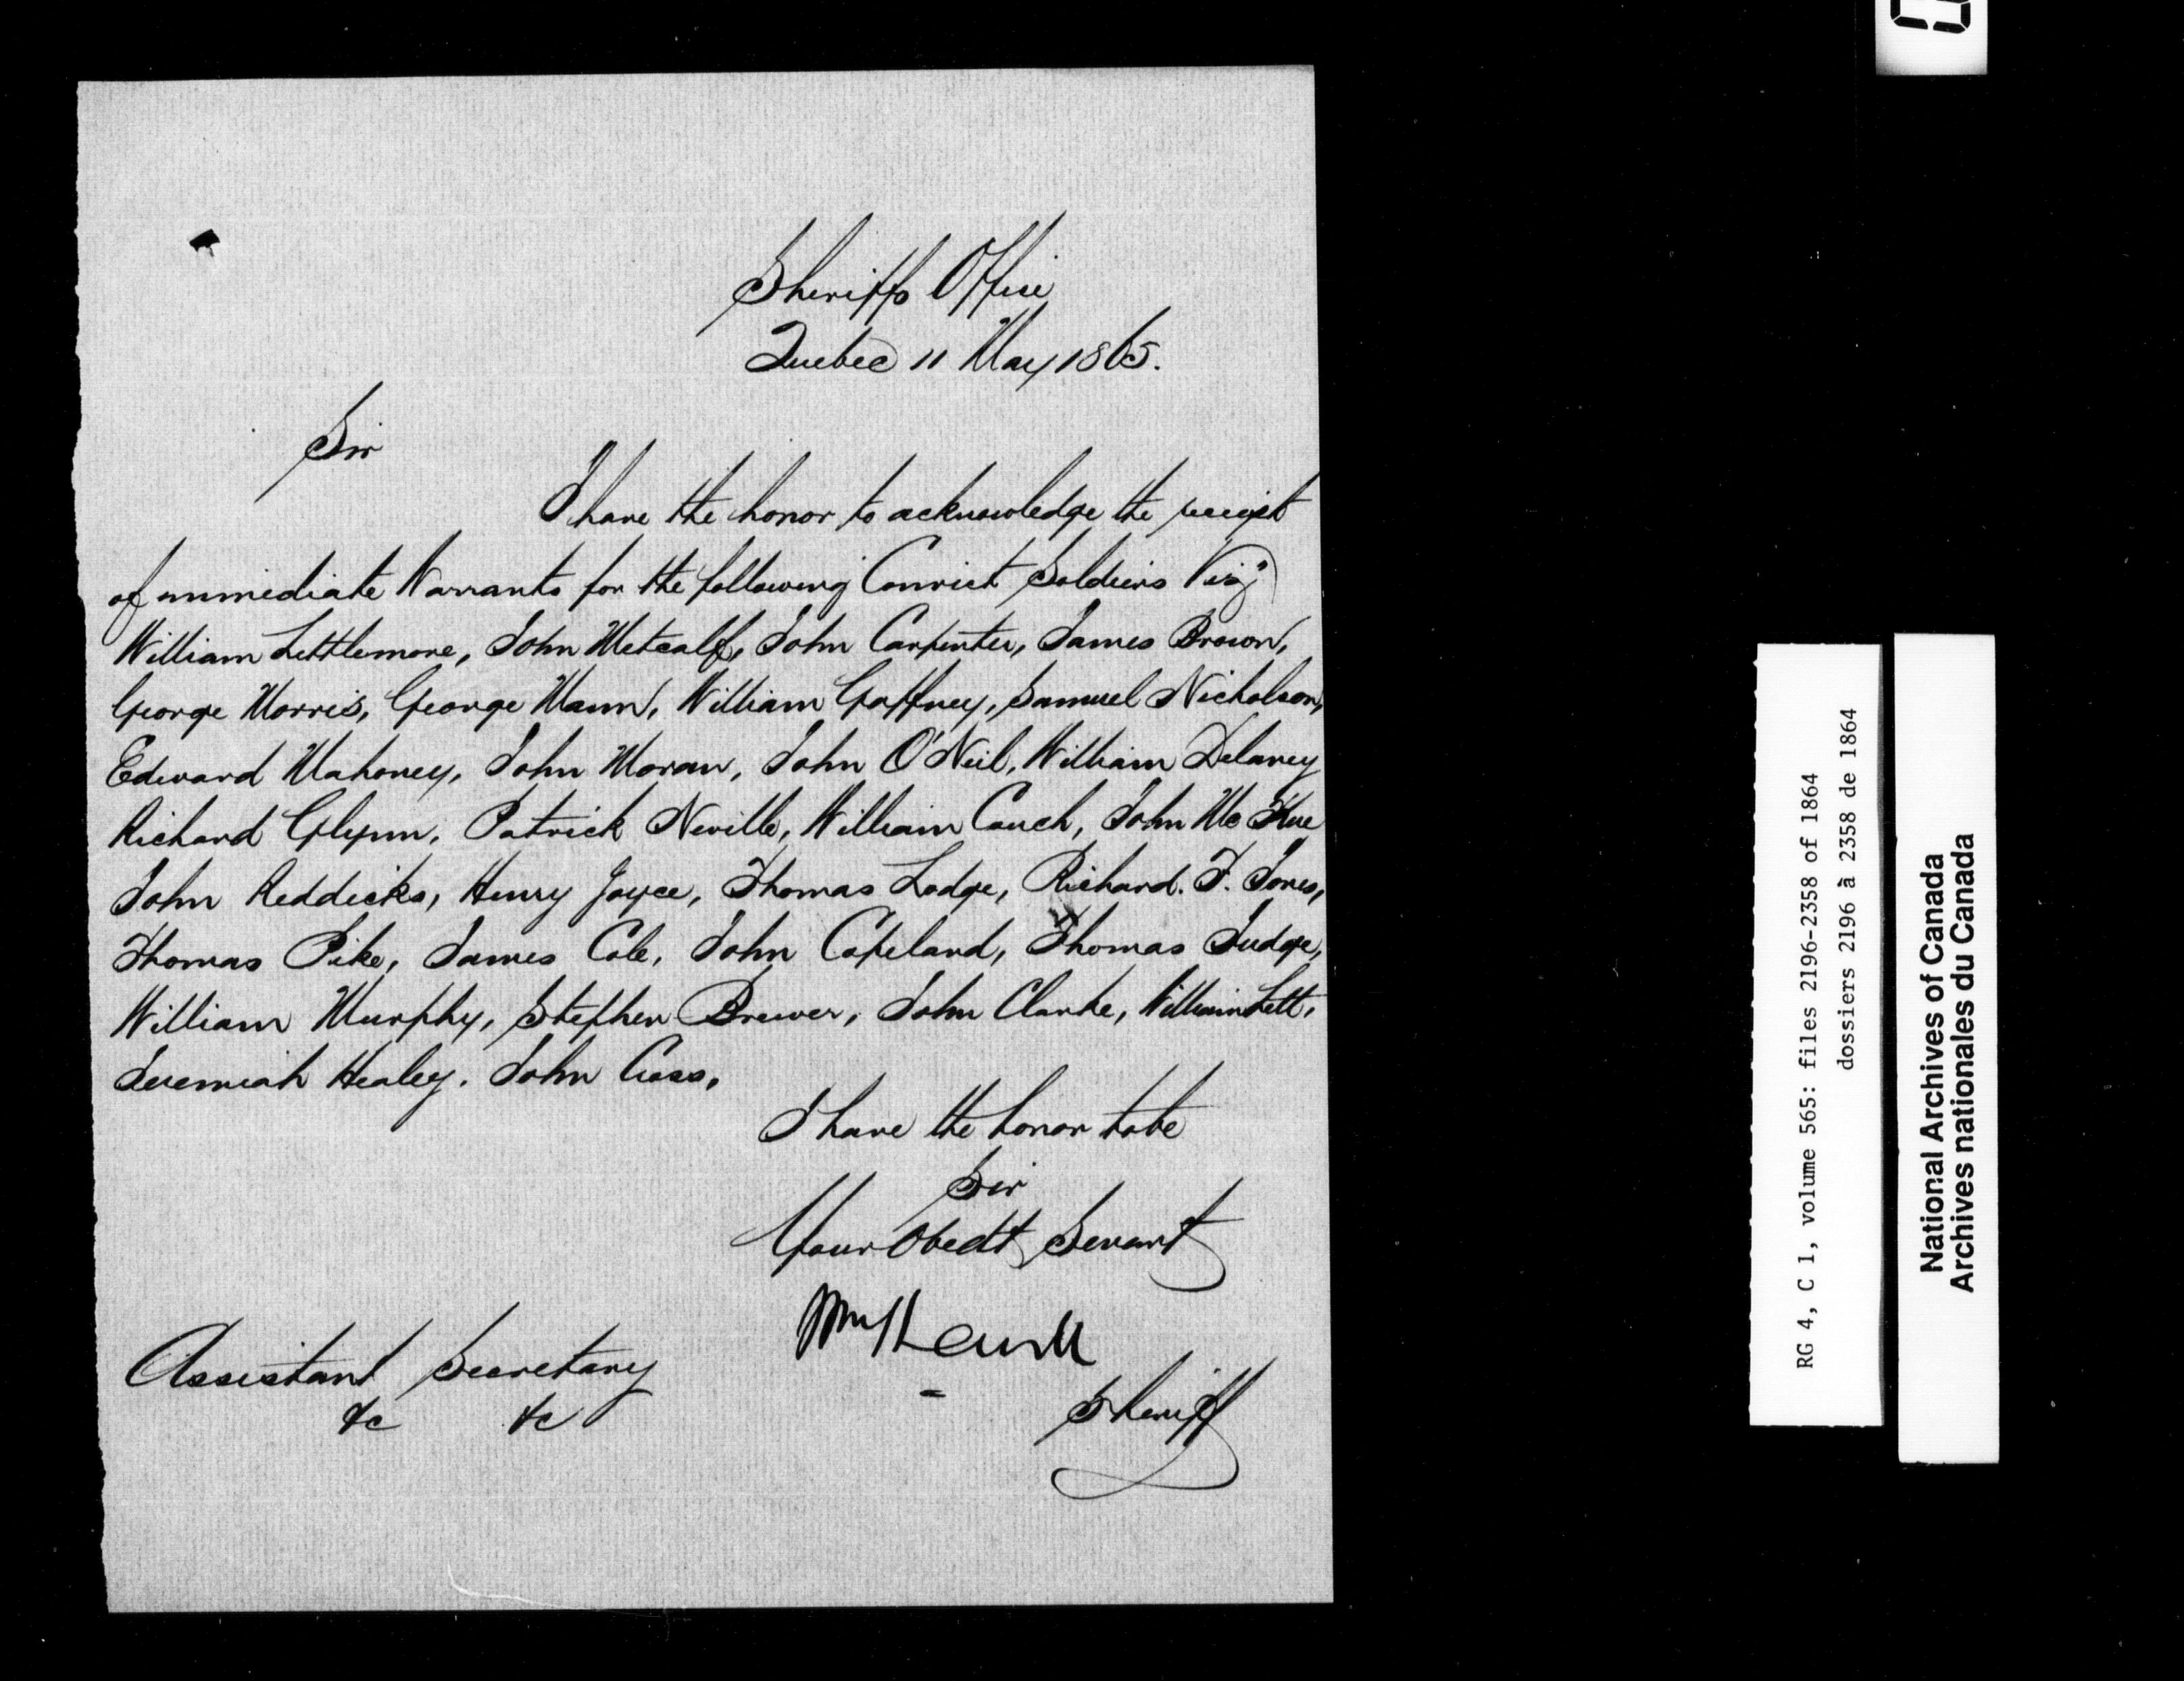 Sheriffs Office
Quebec 11 May 1865.
Sir
I have the honor to acknowledge the receipt
of immediate Warrants for the following Convict Soldiers Viz
William Lettlemore, John Metcalf, John Carpenter, James Brown,
George Morris, George Mann, William Gaffney, Samuel Nicholson,
Edward Mahoney, John Moran, John O'Neil, William Delaney
Richard Glynn, Patrick Neville, William Couch, John Mc
John Reddicks, Henry Joyce, Thomas Lodge, Richard. F. Jones,
Thomas Pike, James Cole, John Copeland, Thomas Judge,
William Murphy, Stephen Brewer, John Clarke, William Lett,
Jeremiah Healey. John Cass,
I have the honor to be
Sir
Your Obedt Servant
Wm
Sheriff
Assistant Secretary
&c &c
RG 4, C 1, volume 565: files 2196-2358 of 1864
dossiers 2196 à 2358 de 1864
National Archives of Canada
Archives nationales du Canada